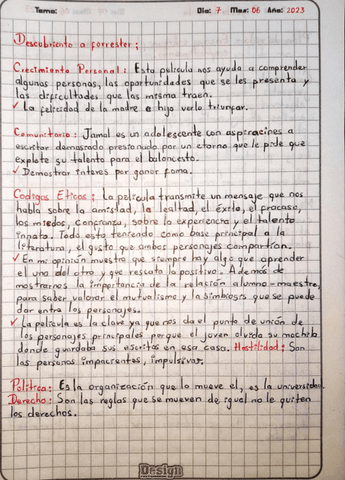 Tema: Día: 7 Mes: 06 Año: 2023
Descubriento a forrester:
Crecimiento Personal: Esta pelicula nos ayuda a comprender
algunas personas, las oportunidades que se les presenta y
las dificultades que las misma traen.
✓ La felicidad de la madre e hijo verlo triunfar.
Comunitario: Jamal es un adolescente con aspiracines a
escritor demasiado presionado por un eterno que le pide que
explote su talento para el baloncesto.
✓ Demostrar interes por ganar fama.
Codigos Eticos: La pelicula transmite un mensaje que nos
habla sobre la amistad, la lealtad, el éxito, el fracaso,
los miedos, confianza, sobre la experiencia y el talento
innato. Todo esto teniendo como base principal a la
literatura, el gusto que ambos personajes compartian.
✓ En mi opinión muestra que siempre hay algo que aprender
el uno del otro y que rescato lo positivo. Además de
mostrarnos la importancia de la relación alumno-maestre,
para saber valorar el mutualismo y la simbiosis que se puede
dar entre los personajes.
✓ La pelicula es la clave ya que nos da el punto de unión de
los personajes principales porque el joven olvida su mochila
donde guardaba sus escritos en esa casa. Hostilidad: Son
las personas impacientes, impulsivas.
Politica: Es la organización que lo mueve el, es la universidad
Derecho: Son las reglas que se mueven de igual no le quiten
los derechos.
Design